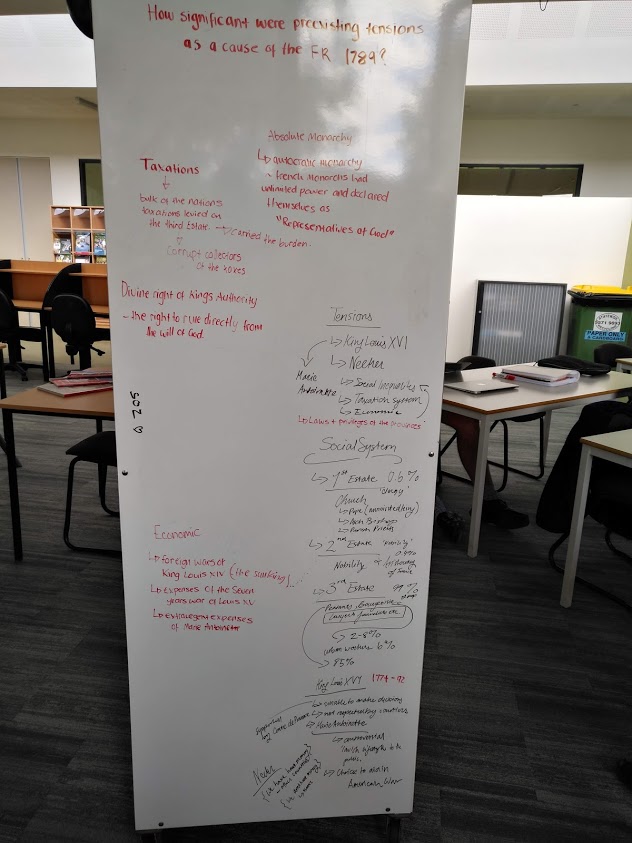 How significant were preexisting tensions
as a cause of the FR 1789?
Absolute Monarchy
↳ autocratic monarchy
- French Monarchs had
unlimited power and declared
themselves as
"Representatives of God"
Taxations
bulk of the nations
taxations levied on
the third Estate. → carried the burden.
Corrupt collectors
of the taxes
Divine right of Kings Authority
- the right to rule directly from
the will of God.
Tensions
↳ King Louis XVI
↳ Necker
Marie
Antoinette
↳ Social Inequalities
↳ Taxation system
↳ Economic
↳ Laws + privileges of the provinces
Q 205
Social System
↳ 1st Estate 0.6%
"clergy"
Church
↳ Pope (anointed king)
↳ Arch Bishops
↳ Parish Priests
↳ 2nd Estate "nobility"
0.4%
Nobility
↳ 3rd Estate 99%
Peasants, Bourgeoisie
↳ 2-8%
urban workers 6%
↳ 85%
Economic
↳ Foreign wars of
King Louis XIV (the sun king)...
↳ Expenses of the Seven
years war of Louis XV
↳ Extravagent expenses
of Marie Antoinette
King Louis XVI 1774-92
↳ unable to make decisions
↳ Marie Antoinette
↳ controversial
lavish lifestyle to the
public.
↳ Choices to aid in
American War
Necker
PAPER ONLY
& CARDBOARD